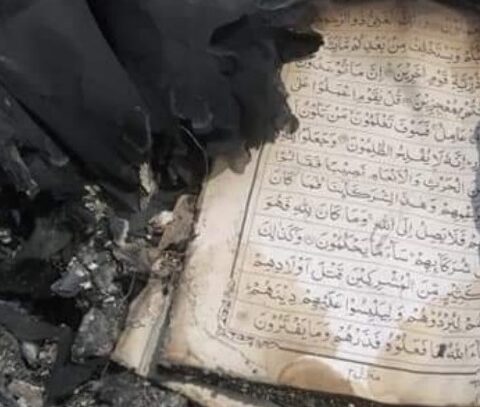 الْغَنِيُّ ذُو الرَّحْمَةِ
وَيَسْتَخْلِفْ مِنْ بَعْدِكُمْ مَّا يَشَآ
ذُرِّيَّةِ قَوْمٍ اٰخَرِيْنَ ۝ اِنَّ مَا تُوْعَدُوْنَ
بِمُعْجِزِيْنَ ۝ قُلْ يٰقَوْمِ اعْمَلُوْا عَلٰى
عَامِلٌ فَسَوْفَ تَعْلَمُوْنَ مَنْ تَكُوْنُ
اِنَّهٗ لَا يُفْلِحُ الظّٰلِمُوْنَ ۝ وَجَعَلُوْا
الْحَرْثِ وَالْاَنْعَامِ نَصِيْبًا فَقَالُوْا
بِزَعْمِهِمْ وَهٰذَا لِشُرَكَآئِنَا فَمَا كَانَ
فَلَا يَصِلُ اِلَى اللّٰهِ وَمَا كَانَ لِلّٰهِ فَهُوَ
شُرَكَآئِهِمْ سَآءَ مَا يَحْكُمُوْنَ ۝ وَكَذٰلِكَ
لِكَثِيْرٍ مِّنَ الْمُشْرِكِيْنَ قَتْلَ اَوْلَادِهِمْ
هُمْ لِيُرْدُوْهُمْ وَلِيَلْبِسُوْا عَلَيْهِمْ دِيْنَهُمْ
آءَ اللّٰهُ مَا فَعَلُوْهُ فَذَرْهُمْ وَمَا يَفْتَرُوْنَ
منزل ٢